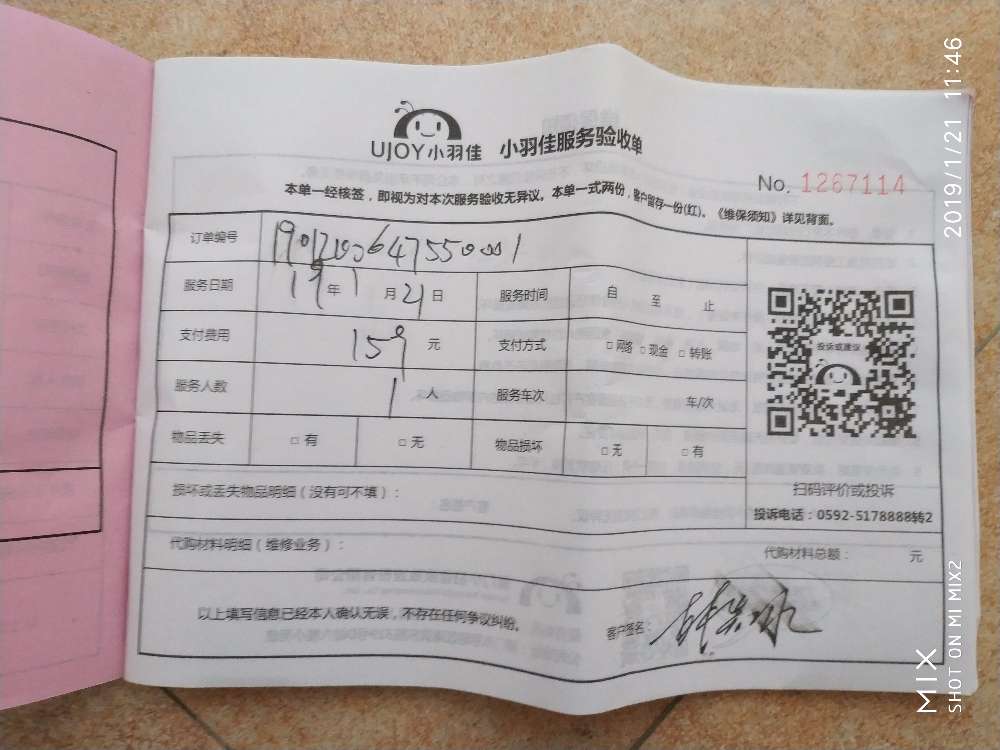 UJOY小羽佳 小羽佳服务验收单
No. 1267114
本单一经核签，即视为对本次服务验收无异议。本单一式两份，客户留存一份(红)。《维保须知》详见背面。
订单编号
服务日期 19年1月21日 服务时间 自 至 止
支付费用 159 元 支付方式 □网络 □现金 □转账
服务人数 1 人 服务车次 车/次
物品丢失 □有 □无 物品损坏 □无 □有
投诉或建议
扫码评价或投诉
投诉电话：0592-5178888转2
损坏或丢失物品明细（没有可不填）：
代购材料明细（维修业务）： 代购材料总额： 元
以上填写信息已经本人确认无误，不存在任何争议纠纷。 客户签名：
2019/1/21 11:46
MIX
SHOT ON MI MIX2